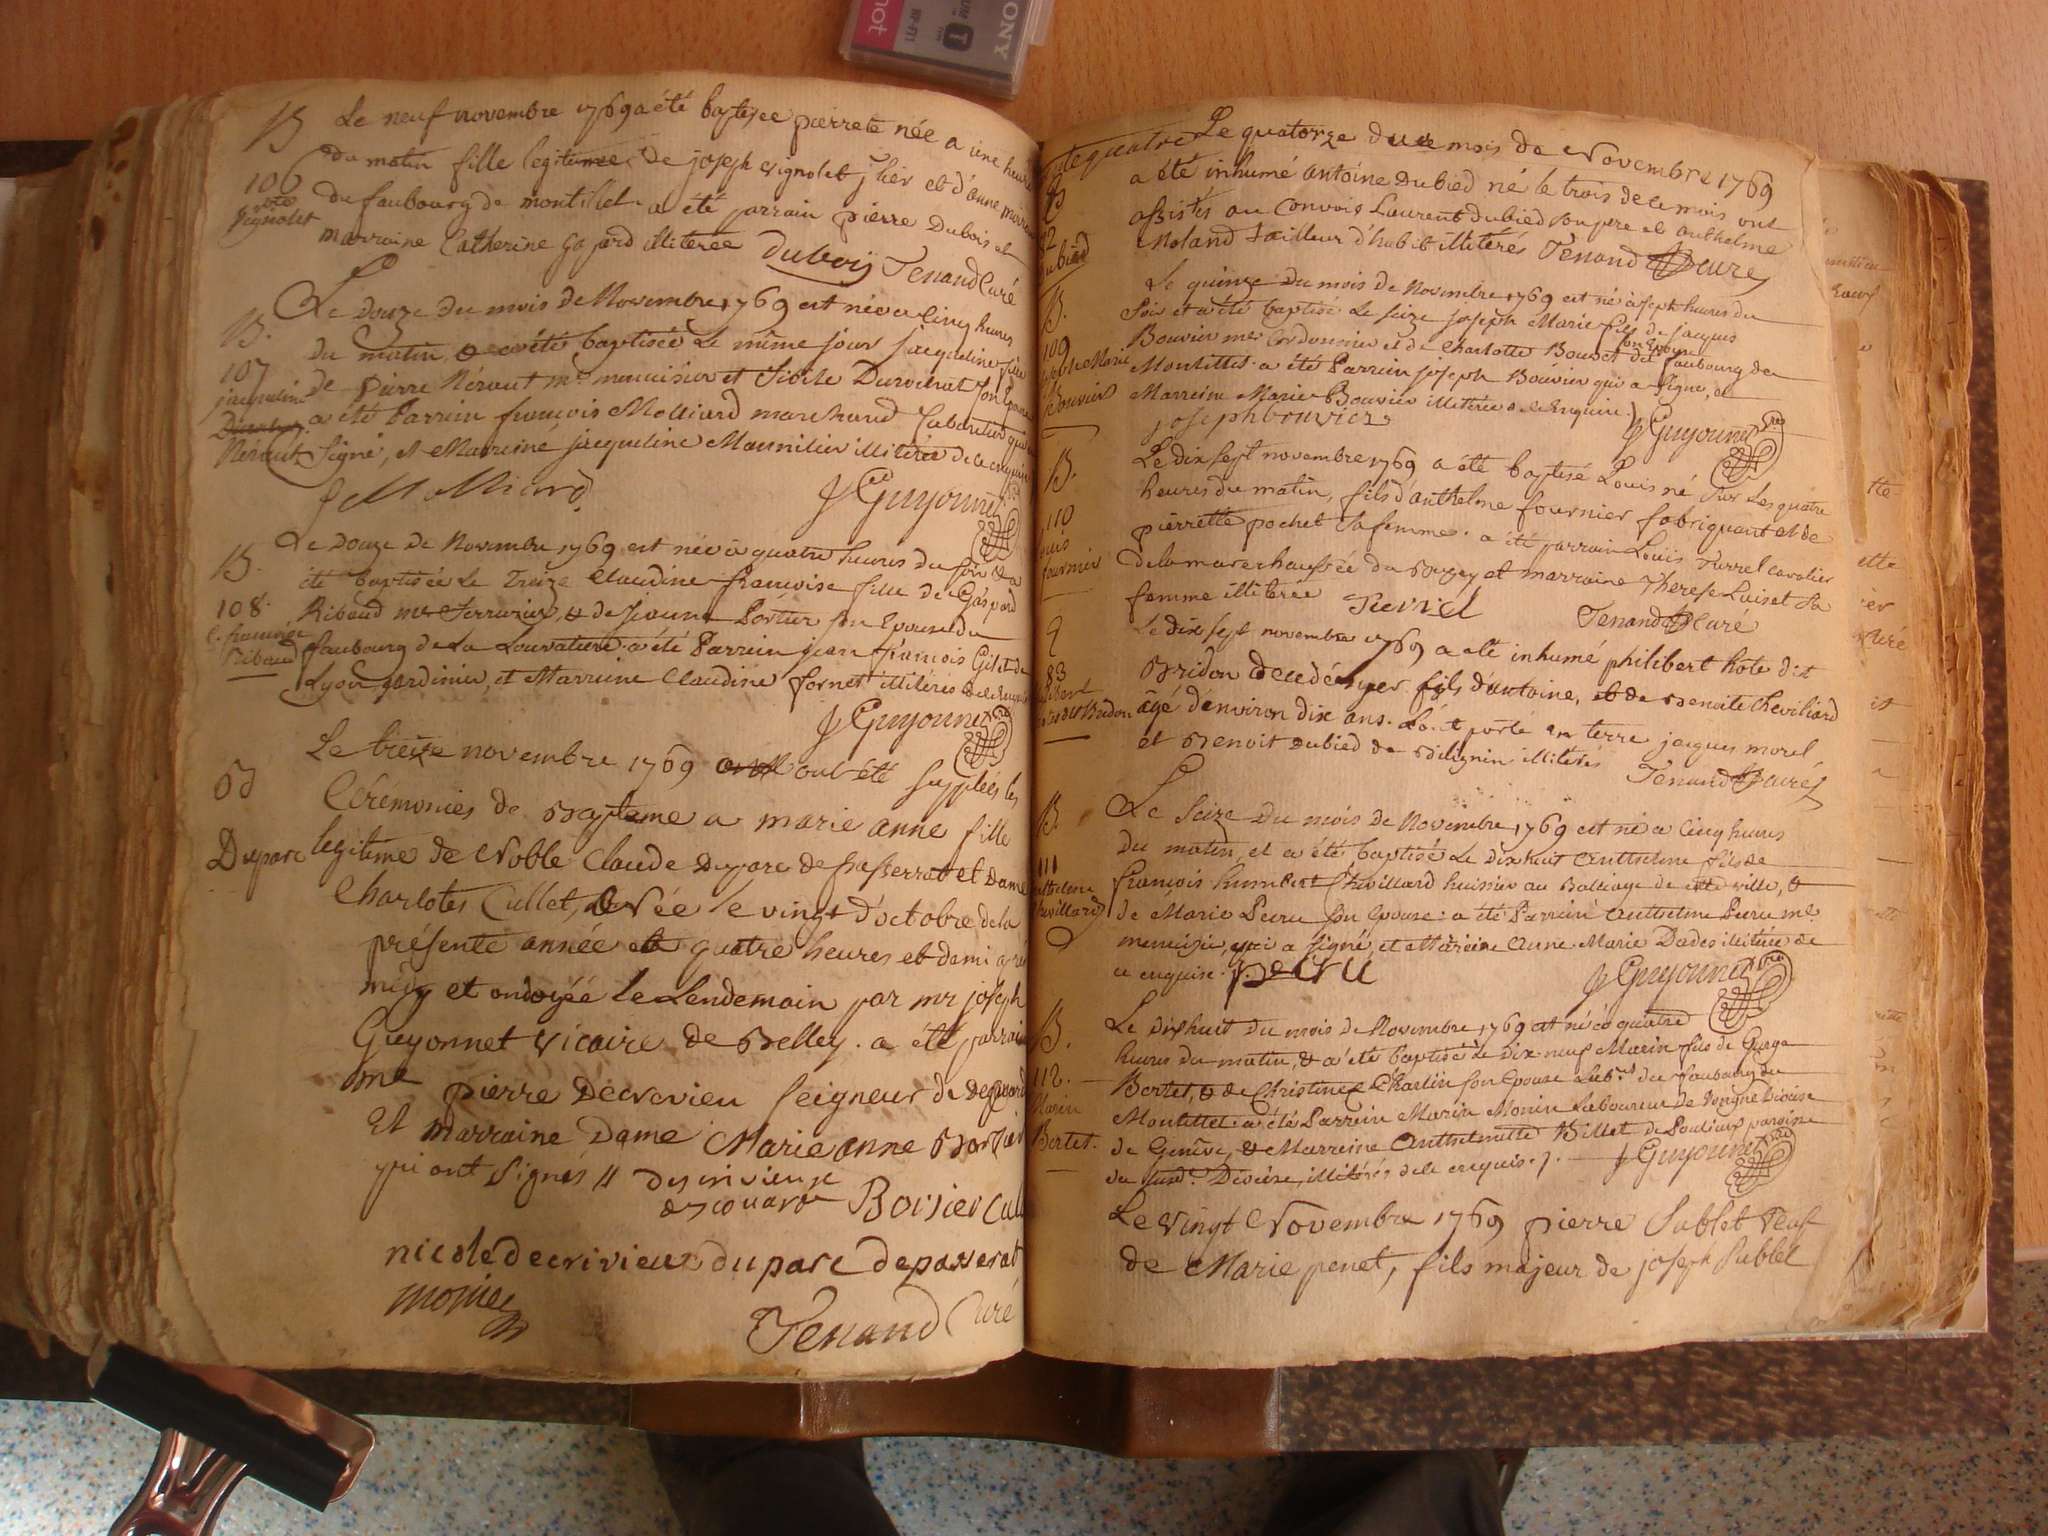 SONY
B
106
Vignolet
Le neuf novembre 1769 a été baptisée pierrete née a une heure
du matin fille legitime de joseph vignolet et d'anne
du faubourg de montillet a été parrain pierre Dubois et
marraine Catherine illiterée Duboij Tenand Curé
B.
107
jacqueline
Néraut
Le Douze du mois de Novembre 1769 est née a Cinq heures
du matin, & a été baptisée Le même jour jacqueline fille
de pierre Néraut me menuisier et Sibile Son Epouse
a été Parrein françois Molliard marchand Cabaretier qui a
Signé, et Marreine jacqueline illiterée de ce enquise
f Molliard J Guyonnet
B.
108.
C. françoise
Ribaud
Le Douze de Novembre 1769 est née à quatre heures du soir & a
été baptisée Le Treize Claudine françoise fille de Gaspard
Ribaud me Serrurier, & de jeanne Portier son Epouse du
faubourg de La Louvatiere a été Parrein jean françois Gilet de
Lyon jardinier, et Marreine Claudine fornet illitérés de ce enquis
J Guyonnet
Bd
Duparc
Le treize novembre 1769 ont été Supplées les
Cérémonies de Bapteme a marie anne fille
legitime de Noble Claude Duparc de passerrat et Dame
Charlotes Cullet, Née le vingt d'octobre de la
présente année a quatre heures et demi après
midy et ondoyée le Lendemain par mr joseph
Guyonnet vicaire de Belley. a été parrain
me pierre Decrevieu Seigneur de
Et marraine Dame Marie anne Borsier
qui ont Signés //
Borsier Cull
nicole decrivieux duparc depasserat
monier
Tenand Curé
Le quatorze du mois de Novembre 1769
a été inhumé antoine Dubied né le trois de ce mois ont
assistés au Convois Laurent Dubied son pere et anthelme
Roland tailleur d'habit illitérés Tenand Curé
82
Dubied
B.
109
joseph Marie
Bouvier
Le quinze du mois de Novembre 1769 est né à sept heures du
Soir et a été baptisé Le Seize joseph Marie fils de jacques
Bouvier me Cordonnier et de Charlotte Bouvet son Epouse du faubourg de
Montillet a été Parrein joseph Bouvier qui a signé, et
Marreine Marie Bouvier illiterée de ce enquise.
joseph bouvier J Guyonnet
B.
110
Louis
fournier
Le dix sept novembre 1769 a été baptisé Louis né Sur Les quatre
heures du matin, fils d'anthelme fournier fabriquant et de
pierrette pochet Sa femme. a été parrain Louis Turrel cavalier
de la marechaussée du Bugey et marraine Therese Luiset Sa
femme illiterée Turrel Tenand Curé
83
Le dix Sept novembre 1769 a été inhumé philibert hôte dit
Bridon decedé hyer fils d'antoine, et de Benoite Cheviliard
âgé d'environ dix ans. L'ont porté en terre jacques morel
et Benoit Dubied de Bilignin illiterés Tenand Curé
B.
111
anthelme
Chevillard
Le Seize du mois de Novembre 1769 est né a Cinq heures
du matin, et a été baptisé Le Dixhuit anthelme fils de
françois humbert Chevillard huissier au Balliage de cette ville, &
de Marie Peiru son Epouse: a été Parrein anthelme Peiru me
menuisier, qui a Signé, et Marreine anne Marie Dades illiterée de
ce enquise. Peiru J Guyonnet
B.
112.
Marin
Bertet.
Le Dixhuit du mois de Novembre 1769 est né a quatre
heures du matin, & a été baptisé Le Dix neuf Marin fils de
Bertet, & de Christine Charlin son Epouse du faubourg de
Montillet a été Parrein Marin Monin Laboureur de Diocèse
de Genêve, & Marreine Anthelmette Billet de paroisse
du Diocèse, illitérés de ce enquis. J Guyonnet
Le vingt Novembre 1769 pierre Sublet veuf
de Marie penet, fils majeur de joseph Sublet